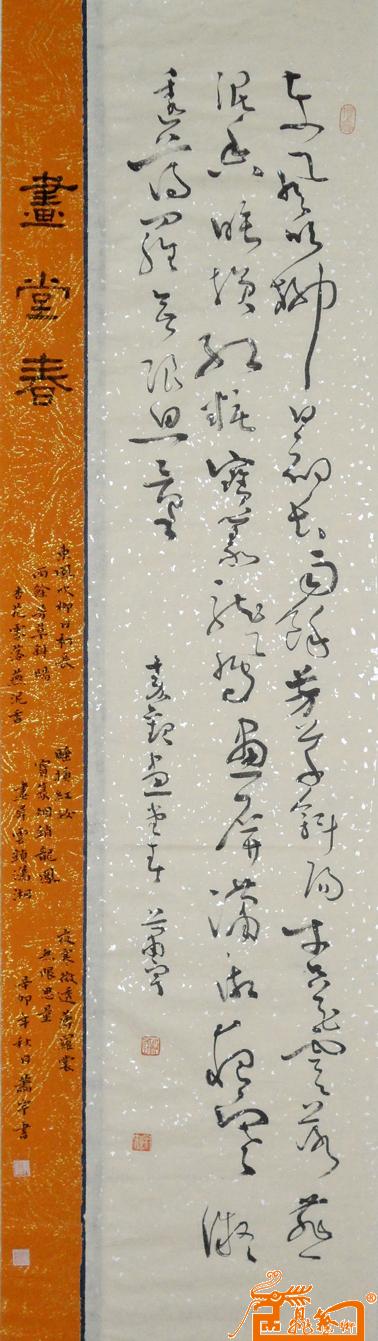 東風吹柳日初長雨餘芳草斜陽杏花零落燕
泥香睡損紅妝寶篆龍鳳畫屏瀟湘夜寒微
透薄羅無限思量
秦觀畫堂春 蕭寧
畫堂春
東風吹柳日初長
雨餘芳草斜陽
杏花零落燕泥香
睡損紅妝
寶篆烟銷龍鳳
畫屏雲鎖瀟湘
夜寒微透薄羅裳
無限思量
辛卯年秋日蕭寧書